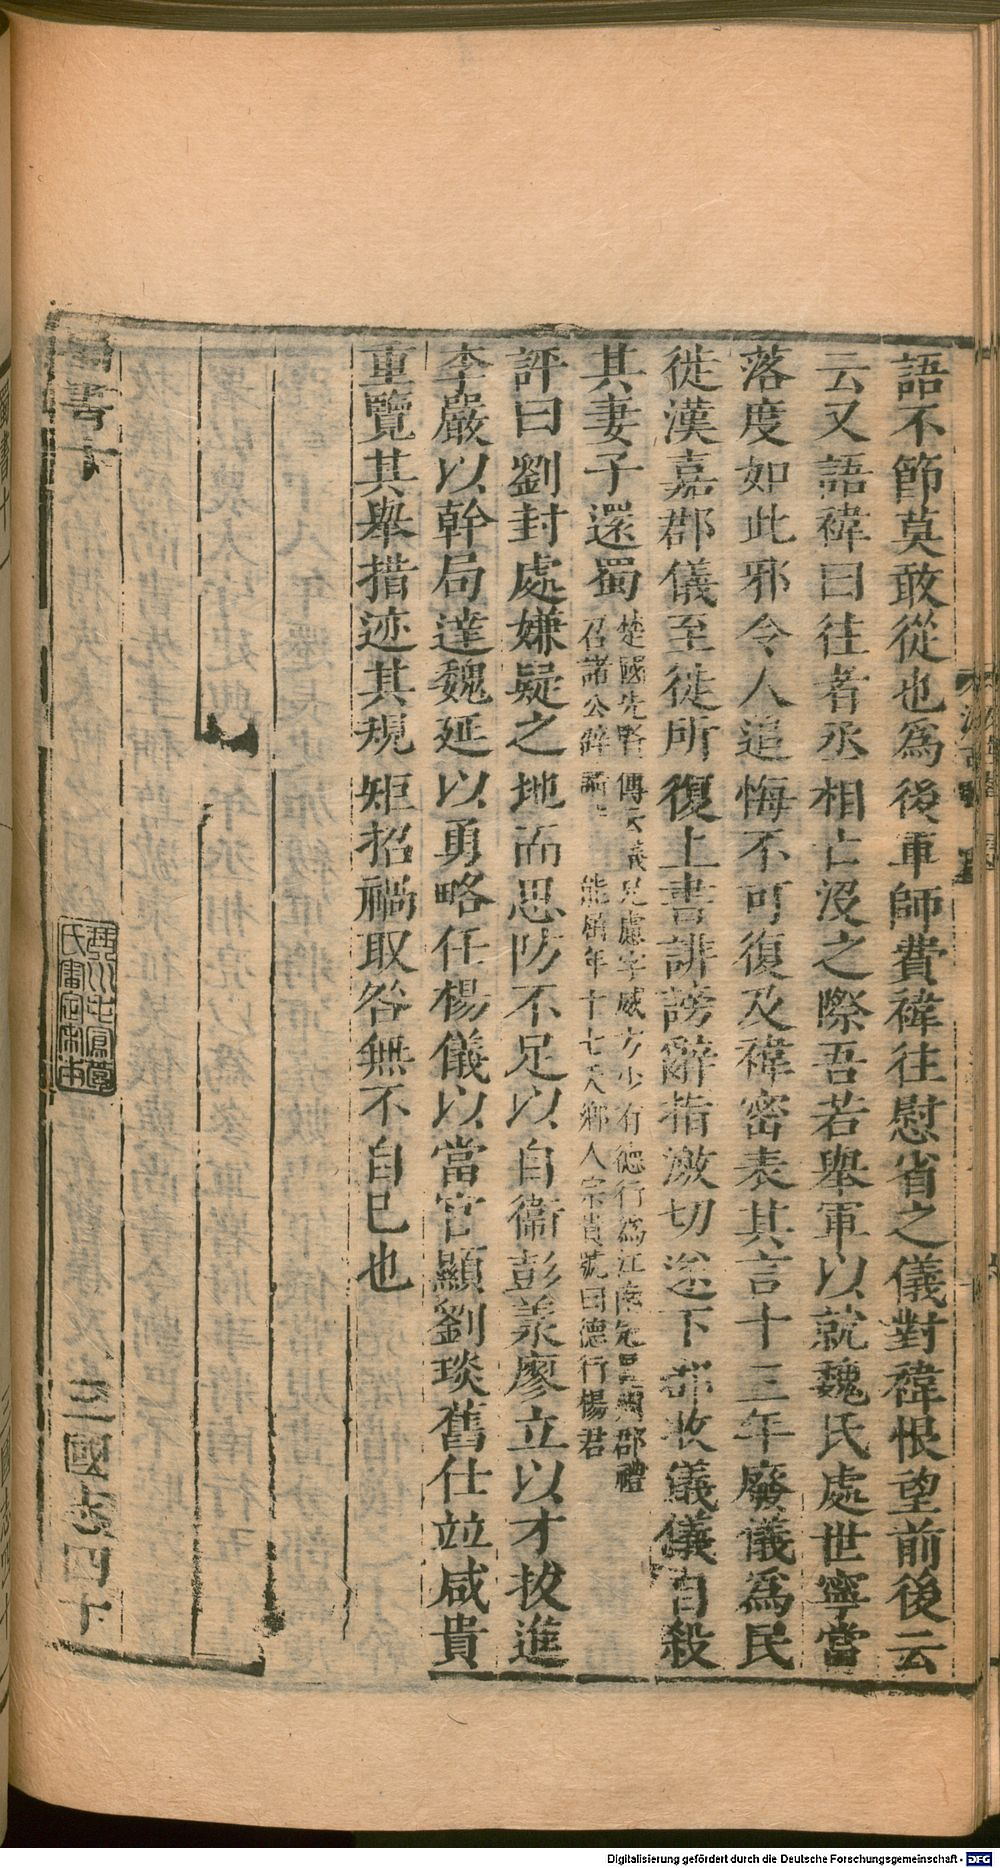 語不節莫敢從也爲後軍師費禕往慰省之儀對禕恨望前後云
云又語禕曰往者丞相亡沒之際吾若舉軍以就魏氏處世寧當
落度如此邪令人追悔不可復及禕密表其言十三年廢儀爲民
徙漢嘉郡儀至徙所復上書誹謗辭指激切遂下郡收儀儀自殺
其妻子還蜀
楚國先賢傳云儀兄慮字威方少有德行爲江南冠冕州郡禮
召諸公辟請
能屈年十七夭鄉人宗貴號曰德行楊君
評曰劉封處嫌疑之地而思防不足以自衞彭羕廖立以才拔進
李嚴以幹局達魏延以勇略任楊儀以當官顯劉琰舊仕竝咸貴
重覽其舉措迹其規矩招禍取咎無不自已也
蜀書十
三國志四十
Digitalisierung gefördert durch die Deutsche Forschungsgemeinschaft - DFG